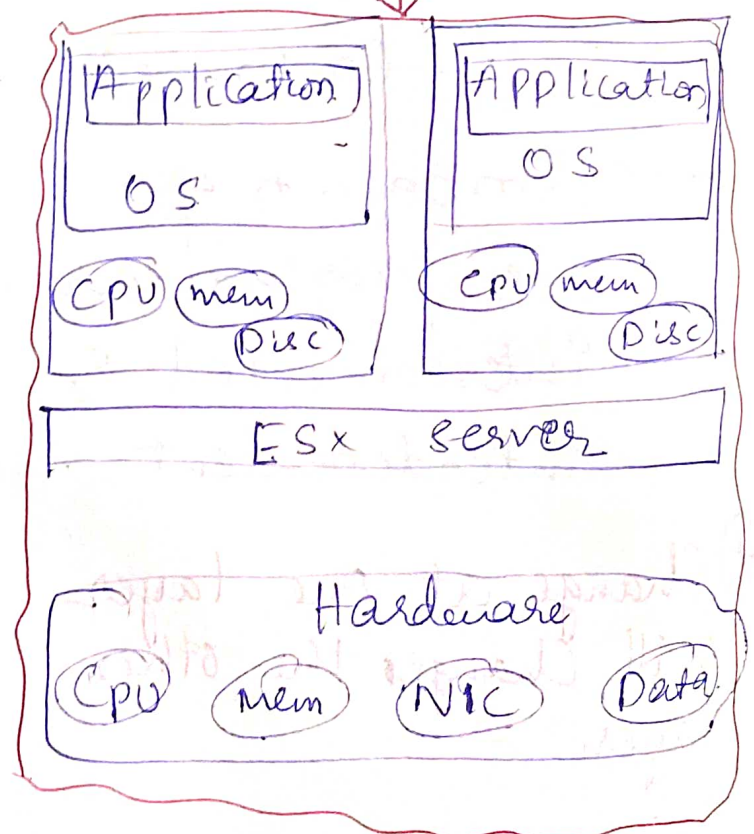 Application
OS
Cpu mem
Disc
Application
OS
Cpu mem
Disc
ESX server
Hardware
Cpu Mem NIC Data